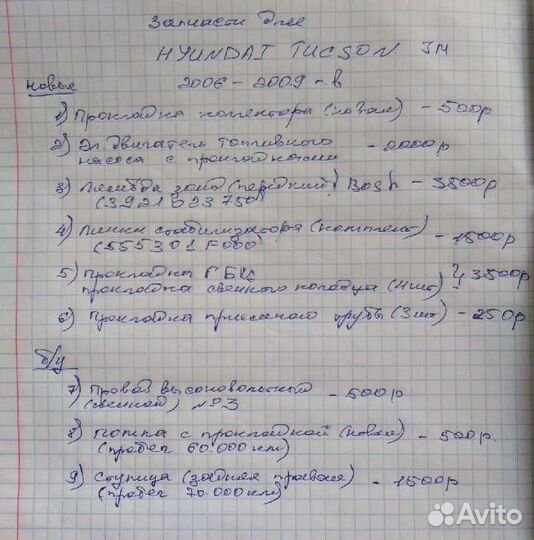 Запчасти для
HYUNDAI TUCSON JM
новые 2006-2009-в
1) Прокладка коллектора (новая) - 500р
2) Эл. двигатель топливного
насоса с прокладками - 2000р
3) Лямбда зонд (передний) Bosh - 3500р
(3921023750)
4) Линки стабилизатора (комплект)
(555301F000) - 1500р
5) Прокладка ГБЦ
прокладка свечного колодца (4шт) } 3500р
6) Прокладка приемной трубы (3шт) - 250р
б/у
7) Провод высоковольтный
(свечной) №3 - 500р
8) помпа с прокладкой (новая) - 500р
(пробег 60.000км)
9) Ступица (задняя правая) - 1500р
(пробег 70.000км)
Avito